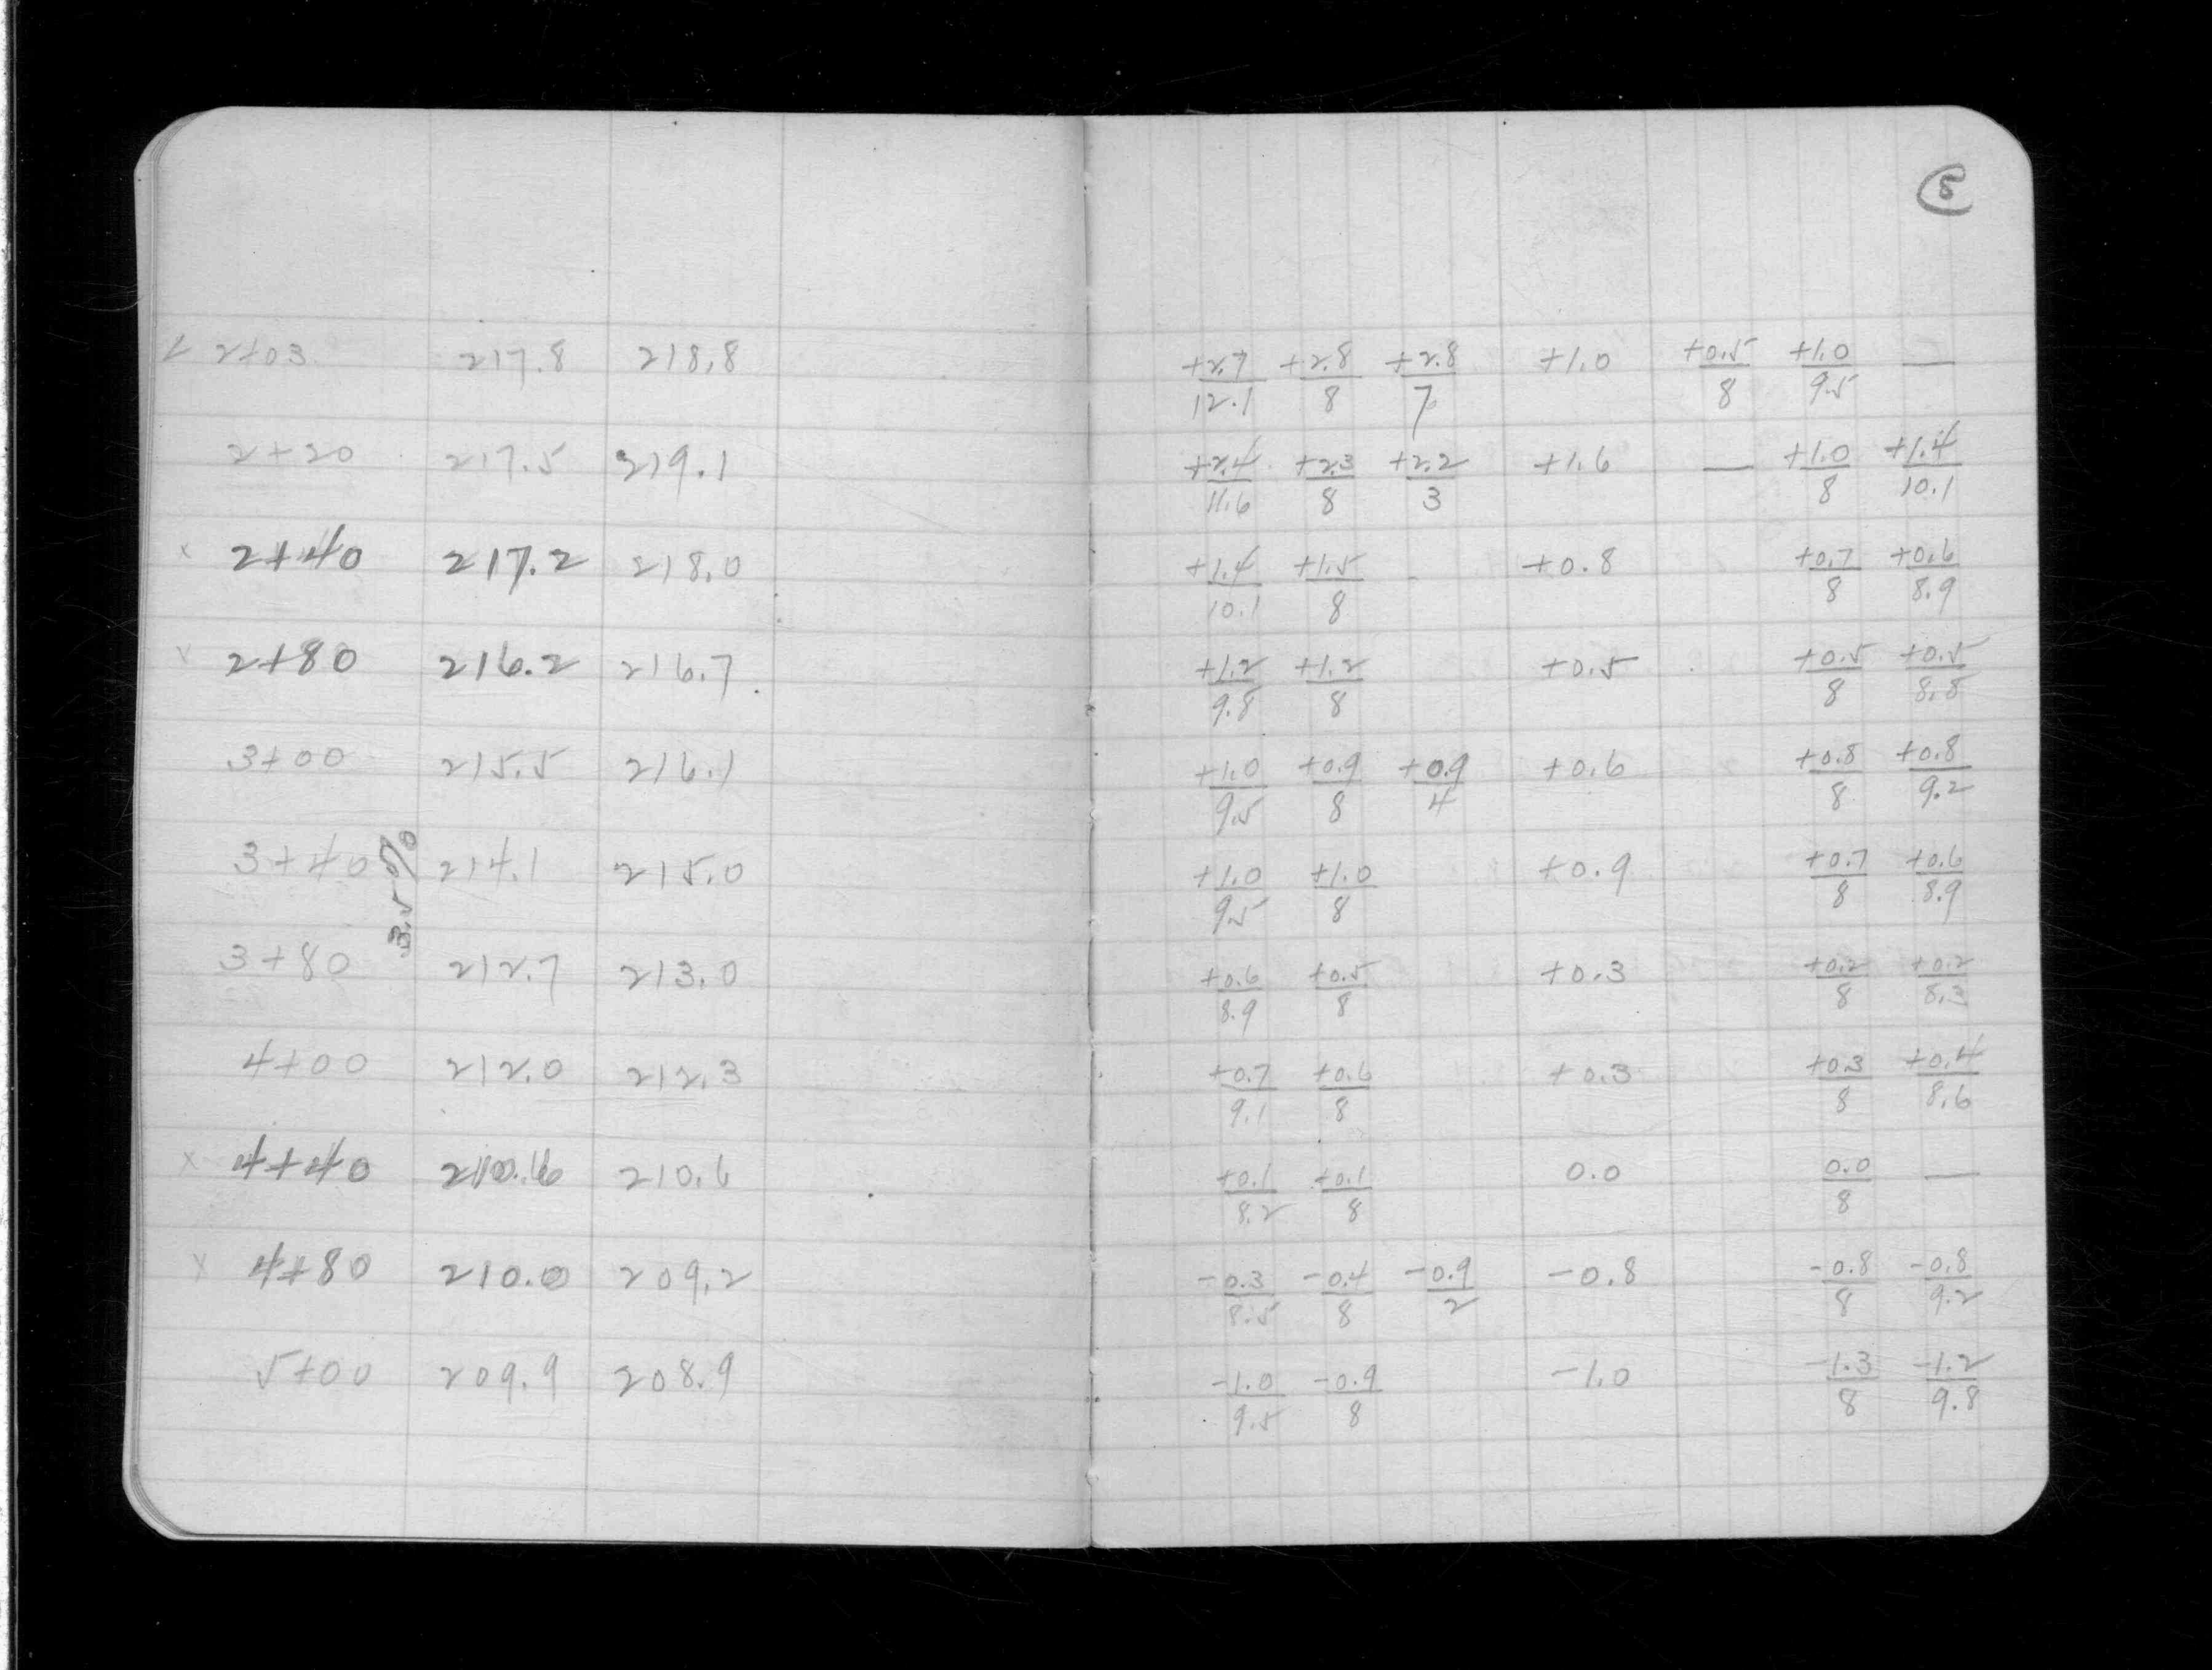 5
2+03 217.8 218.8 +2.7/12.1 +2.8/8 +2.8/7 +1.0 +0.5/8 +1.0/9.5 —
2+20 217.5 219.1 +2.4/11.6 +2.3/8 +2.2/3 +1.6 — +1.0/8 +1.4/10.1
x 2+40 217.2 218.0 +1.4/10.1 +1.5/8 +0.8 +0.7/8 +0.6/8.9
x 2+80 216.2 216.7 +1.2/9.8 +1.2/8 +0.5 +0.5/8 +0.5/8.8
3+00 215.5 216.1 +1.0/9.5 +0.9/8 +0.9/4 +0.6 +0.8/8 +0.8/9.2
3+40 214.1 215.0 +1.0/9.5 +1.0/8 +0.9 +0.7/8 +0.6/8.9
3.5%
3+80 212.7 213.0 +0.6/8.9 +0.5/8 +0.3 +0.2/8 +0.2/8.3
4+00 212.0 212.3 +0.7/9.1 +0.6/8 +0.3 +0.3/8 +0.4/8.6
x 4+40 210.6 210.6 +0.1/8.2 +0.1/8 0.0 0.0/8 —
x 4+80 210.0 209.2 -0.3/8.5 -0.4/8 -0.9/2 -0.8 -0.8/8 -0.8/9.2
5+00 209.9 208.9 -1.0/9.5 -0.9/8 -1.0 -1.3/8 -1.2/9.8